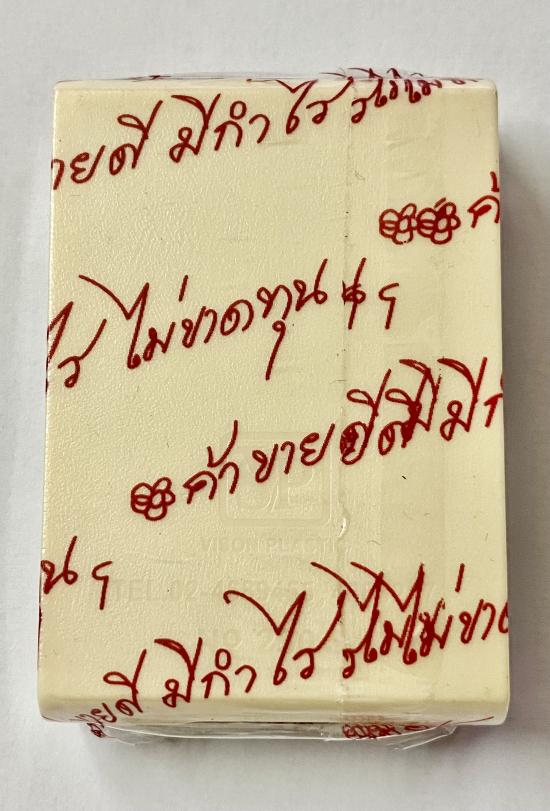 ายดี มีกำไร
ค้
ไร ไม่ขาดทุน ฯ
ค้าขายดี มีก
ุน ฯ
ายดี มีกำไร ไม่ขา
VISON PLASTIC
TEL.02-